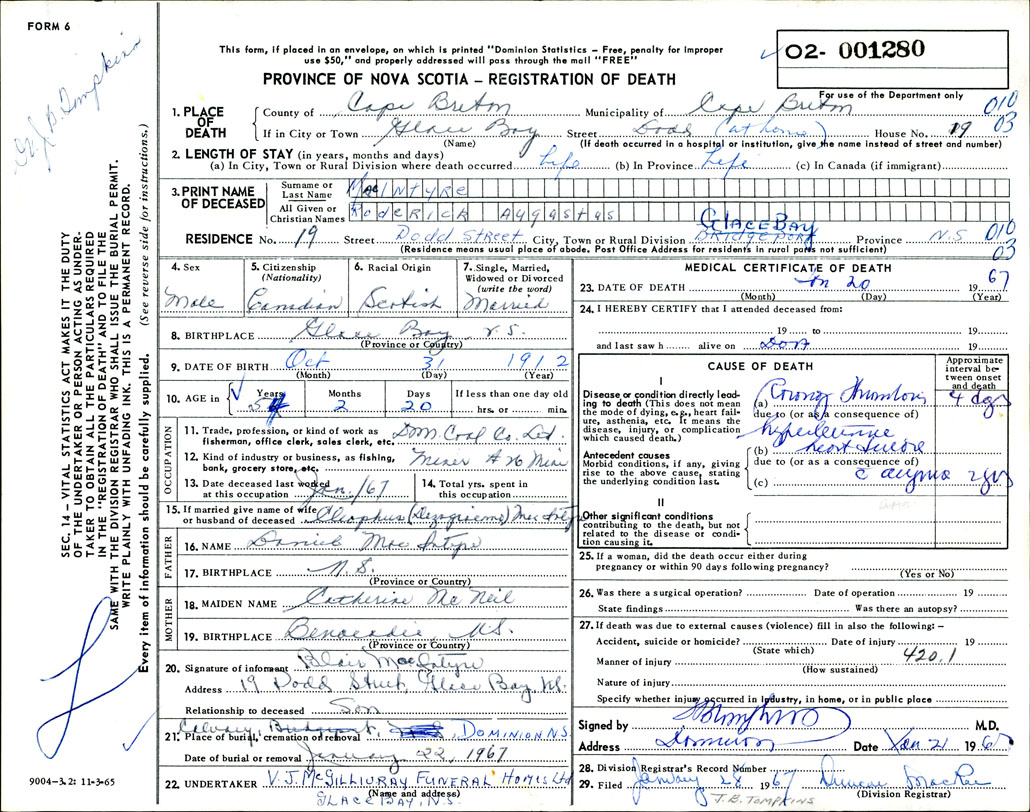 FORM 6
This form, if placed in an envelope, on which is printed "Dominion Statistics – Free, penalty for improper
use $50," and properly addressed will pass through the mail "FREE"
02- 001280
For use of the Department only
PROVINCE OF NOVA SCOTIA – REGISTRATION OF DEATH
010
03
1. PLACE OF DEATH
County of Cape Breton Municipality of Cape Breton
If in City or Town Glace Bay Street Dodd (at home) House No. 19
(Name) (If death occurred in a hospital or institution, give the name instead of street and number)
2. LENGTH OF STAY (in years, months and days)
(a) In City, Town or Rural Division where death occurred Life (b) In Province Life (c) In Canada (if immigrant)
3. PRINT NAME OF DECEASED
Surname or Last Name MacINTYRE
All Given or Christian Names RODERICK AUGASTAS
GLACE BAY
RESIDENCE No. 19 Street Dodd Street City, Town or Rural Division BRIDGEPORT Province N.S.
(Residence means usual place of abode. Post Office Address for residents in rural parts not sufficient)
010
03
4. Sex
Male
5. Citizenship
(Nationality)
Canadian
6. Racial Origin
Scotish
7. Single, Married,
Widowed or Divorced
(write the word)
Married
8. BIRTHPLACE Glace Bay N.S.
(Province or Country)
9. DATE OF BIRTH Oct 31 1912
(Month) (Day) (Year)
10. AGE in Years 54 Months 2 Days 20 If less than one day old
hrs. or min.
OCCUPATION
11. Trade, profession, or kind of work as
fisherman, office clerk, sales clerk, etc. Coal Co. Ltd.
12. Kind of industry or business, as fishing,
bank, grocery store, etc. Miner
13. Date deceased last worked
at this occupation Jan. /67
14. Total yrs. spent in
this occupation
15. If married give name of wife
or husband of deceased Cleophus MacIntyre
FATHER
16. NAME Daniel MacIntyre
17. BIRTHPLACE N.S.
(Province or Country)
MOTHER
18. MAIDEN NAME Catherine McNeil
19. BIRTHPLACE N.S.
(Province or Country)
20. Signature of informant Blair MacIntyre
Address 19 Dodd Street, Glace Bay N.S.
Relationship to deceased Son
21. Place of burial, cremation or removal Calvary DOMINION N.S.
Date of burial or removal January 22, 1967
22. UNDERTAKER V.J. McGILLIVRAY FUNERAL HOMES Ltd
(Name and address)
GLACE BAY, N.S.
MEDICAL CERTIFICATE OF DEATH
23. DATE OF DEATH Jan 20 1967
(Month) (Day) (Year)
24. I HEREBY CERTIFY that I attended deceased from:
19 to 19
and last saw h alive on 19
CAUSE OF DEATH
Approximate
interval be-
tween onset
and death
I
Disease or condition directly lead-
ing to death (This does not mean
the mode of dying, e.g., heart fail-
ure, asthenia, etc. It means the
disease, injury, or complication
which caused death.)
(a) Coronary Thrombosis 4 days
due to (or as a consequence of)
hypertensive
Antecedent causes
Morbid conditions, if any, giving
rise to the above cause, stating
the underlying condition last.
(b) heart
due to (or as a consequence of)
(c) angina 2 yrs
II
Other significant conditions
contributing to the death, but not
related to the disease or condi-
tion causing it.
25. If a woman, did the death occur either during
pregnancy or within 90 days following pregnancy?
(Yes or No)
26. Was there a surgical operation? Date of operation 19
State findings Was there an autopsy?
27. If death was due to external causes (violence) fill in also the following: –
Accident, suicide or homicide? Date of injury 19
(State which)
420.1
Manner of injury
(How sustained)
Nature of injury
Specify whether injury occurred in industry, in home, or in public place
Signed by M.D.
Address Dominion Date Jan 21 1967
28. Division Registrar's Record Number
29. Filed January 28 1967 Duncan MacRae
(Division Registrar)
J.B. TOMPKINS
J B Tompkins
SEC. 14 – VITAL STATISTICS ACT MAKES IT THE DUTY
OF THE UNDERTAKER OR PERSON ACTING AS UNDER-
TAKER TO OBTAIN ALL THE PARTICULARS REQUIRED
IN THE "REGISTRATION OF DEATH" AND TO FILE THE
SAME WITH THE DIVISION REGISTRAR WHO SHALL ISSUE THE BURIAL PERMIT.
WRITE PLAINLY WITH UNFADING INK. THIS IS A PERMANENT RECORD.
Every item of information should be carefully supplied. (See reverse side for instructions.)
9004-3.2: 11-3-65